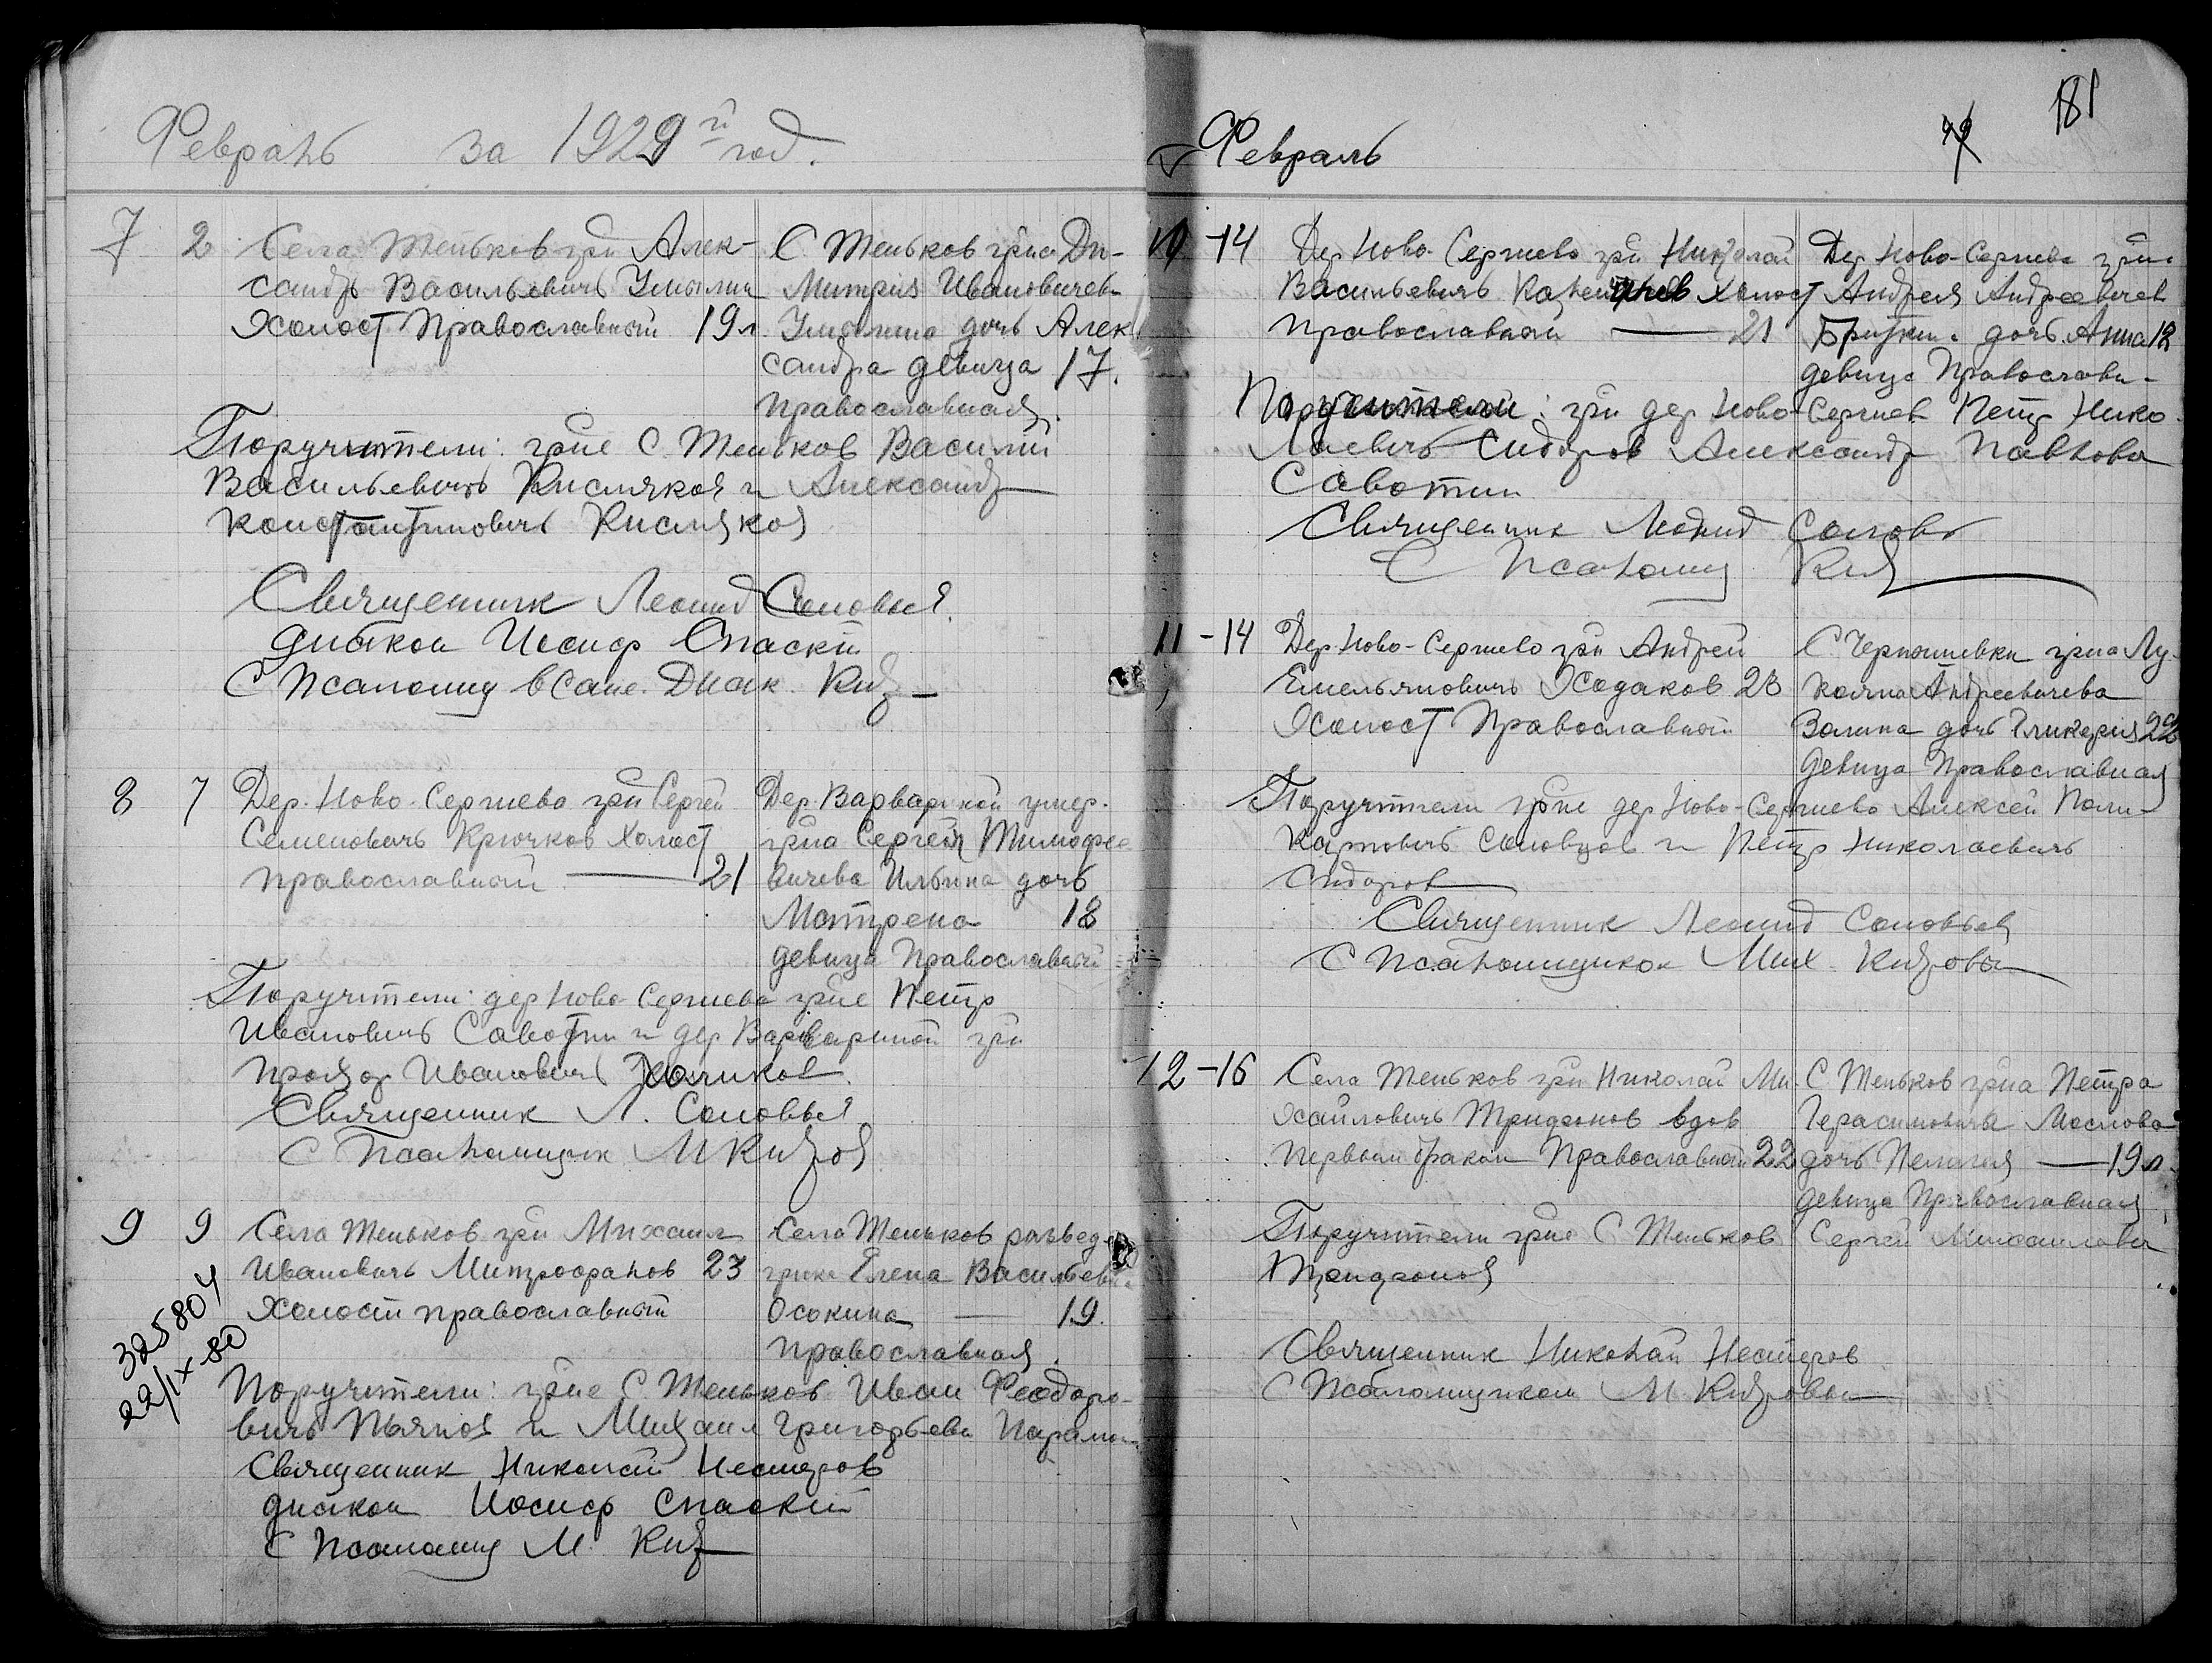 Февраль за 1929й год.
7 2 Села Теньков грн Алек-
сандръ Васильевичъ Умылин
Холост Православный 19л
С Теньков грна Ди-
митрия Ивановичев
дочь Алек
сандра девица 17.
Православная.
Поручители: грне С. Теньков Василий
Васильевичъ Кисляков и Александр
Константиновичъ Кисляков
Священник Леонид Соловьев
диакон Иосиф Спаский
С Псаломщ в сане Диак. Кид
8 7 Дер. Ново-Сергиево грн Сергей
Семеновичъ Крючков Холост
православный — 21
Дер. Варвариной умер.
грна Сергея Тимофее
вичева Ильина дочь
Матрена 18
девица Православной
Поручители: дер Ново-Сергиева грне Петр
Ивановичъ Саводин и дер Варвариной грн
Ивановичъ
Священник Л. Соловьев
С Псаломщик М
9 9 Села Теньков грн Михаил
Ивановичъ Митрофанов 23
Холост православный
Села Теньков развед
грнка Елена Васильевна
Осокина — 19.
Православная.
325804
22/IX-80
Поручители: грне С Теньков Иван Феодоро-
вичъ и Михаил Григорьева
Священник Николай Нестеров
диакон Иосиф Спаский
С Псаломщ М. Кид
Февраль
99 181
10-14 Дер Ново-Сергиево грн Николай
Васильевичъ Холост
Православный — 21
Дер Ново-Сергиева грна
Андрея Андреевичев
дочь Анна 18
девица Православн-
Поручители: грн дер Ново-Сергиев Петр Нико
лаевичъ Сидоров Александр Павлови
Савотин
Священник Леонид Солов
С Псаломщ Кид
11-14 Дер. Ново-Сергиево грн Андрей
Емельяновичъ Ходаков 23
Холост Православный
С Чернышевки грна Лу
кояна Андреевичева
Золина дочь Гликерия 22
девица Православная
Поручители грне дер Ново-Сергиево Алексей Поли-
карповичъ Соловцов и Петр Николаевичъ
Сидоров
Священник Леонид Соловьев
С Псаломщиком Мих.
12-16 Села Теньков грн Николай Ми-
хайловичъ Трифонов вдов
Первым браком Православный 22
С Теньков грна Петра
Герасимовича Маслова
дочь Пелагея — 19л.
девица Православная
Поручители грне С Теньков Сергей Михайлович
Священник Николай Нестеров
С Псаломщиком М